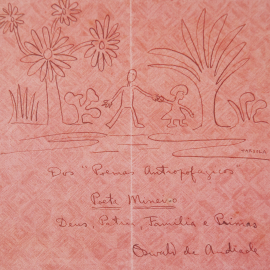 TARSILA
Dos "Poemas Antropofágicos
Poeta Menino
Deus, Patria, Familia e Primas
Oswald de Andrade